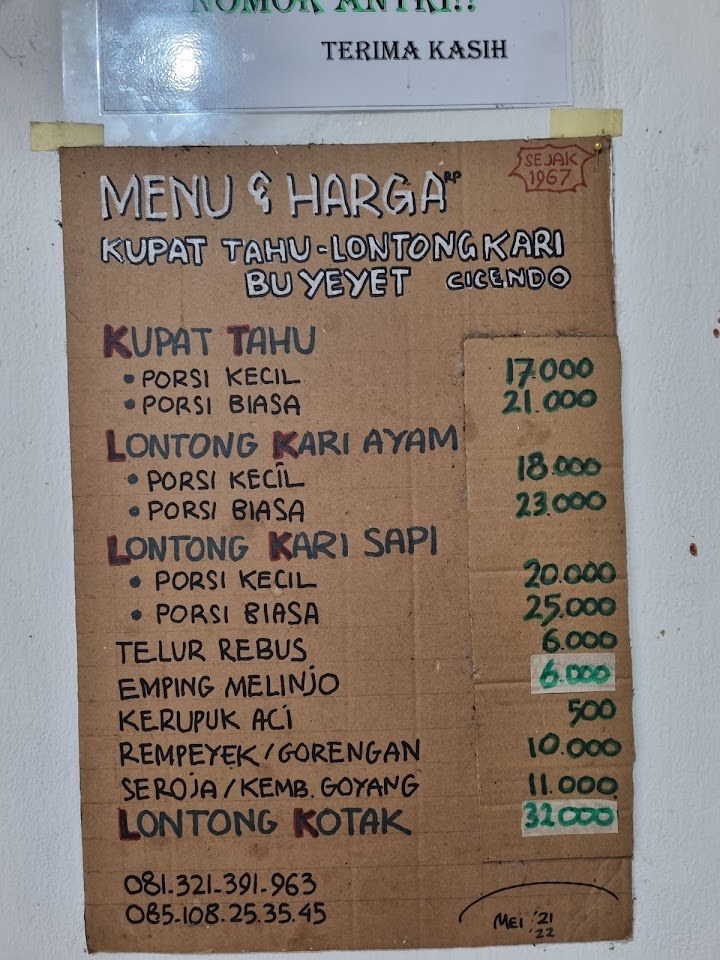 NOMOR ANTRI!!
TERIMA KASIH
SEJAK
1967
MENU & HARGA RP
KUPAT TAHU - LONTONG KARI
BU YEYET CICENDO
KUPAT TAHU
• PORSI KECIL 17.000
• PORSI BIASA 21.000
LONTONG KARI AYAM
• PORSI KECIL 18.000
• PORSI BIASA 23.000
LONTONG KARI SAPI
• PORSI KECIL 20.000
• PORSI BIASA 25.000
TELUR REBUS 6.000
EMPING MELINJO 6.000
KERUPUK ACI 500
REMPEYEK/GORENGAN 10.000
SEROJA/KEMB. GOYANG 11.000
LONTONG KOTAK 32000
081.321.391.963
085-108.25.35.45
MEI '21
'22